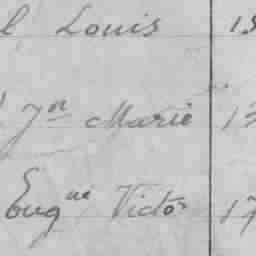 l Louis 15
Jn Marie 13
Eugne Victor 17